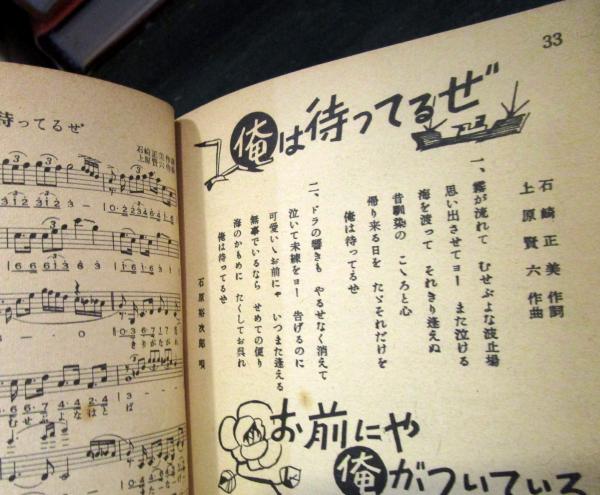 33
俺は待ってるぜ
石崎正美 作詞
上原賢六 作曲
一、霧が流れて むせぶよな波止場
思い出させてヨー また泣ける
海を渡って それきり逢えぬ
昔馴染の こゝろと心
帰り来る日を たゞそれだけを
俺は待ってるぜ
二、ドラの響きも やるせなく消えて
泣いて未練をヨー 告げるのに
可愛いゝお前にゃ いつまた逢える
無事でいるなら せめての便り
海のかもめに たくしてお呉れ
俺は待ってるぜ
石原裕次郎 唄
お前にや
俺がついている
待ってるぜ
石崎正美作詞
上原賢六作曲